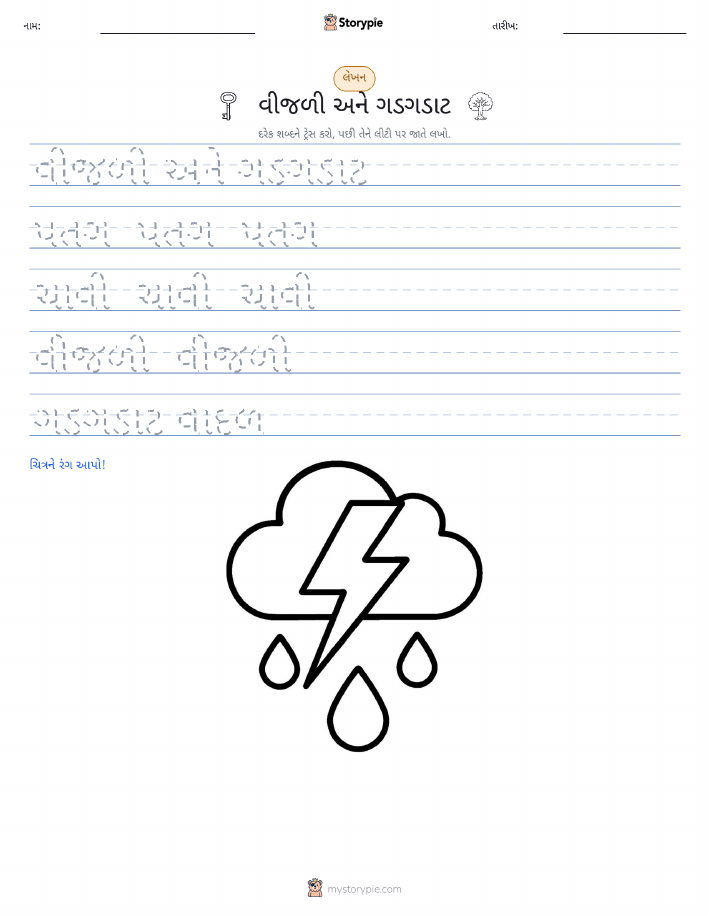 નામ:
Storypie
તારીખ:
લેખન
વીજળી અને ગડગડાટ
દરેક શબ્દને ટ્રેસ કરો, પછી તેને લીટી પર જાતે લખો.
વીજળી અને ગડગડાટ
પતગ પતગ પતગ
ચાવી ચાવી ચાવી
વીજળી વીજળી
ગડગડાટ વાદળ
ચિત્રને રંગ આપો!
mystorypie.com